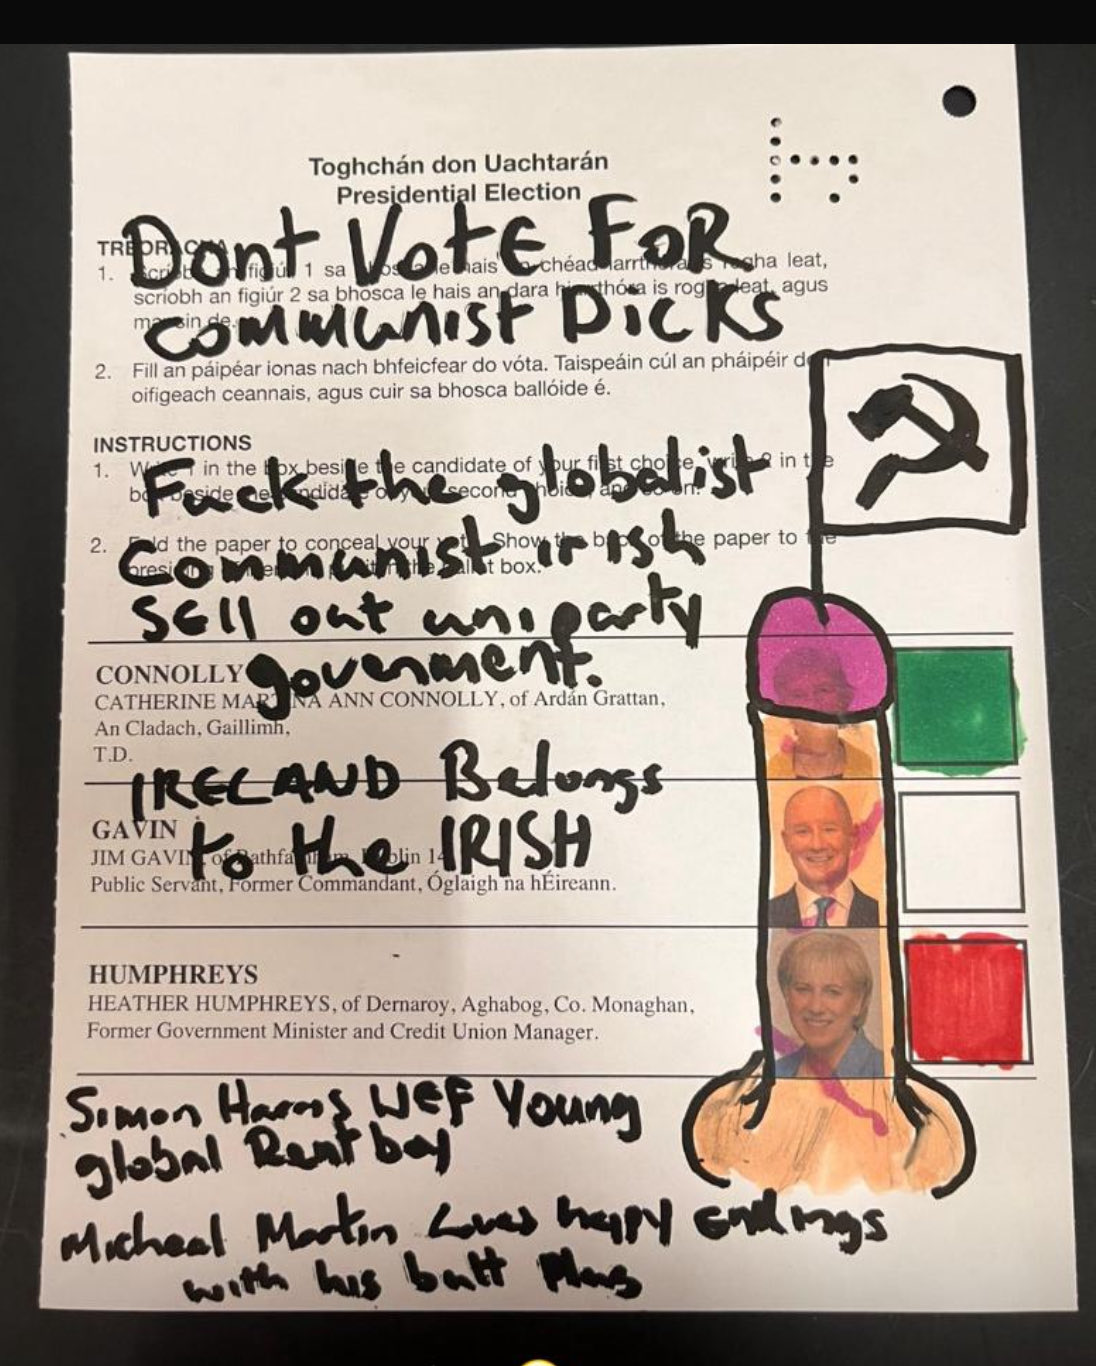 Toghchán don Uachtarán
Presidential Election
Dont VotE FoR
communist DicKs
TREORACHA
1. Scríobh an figiúr 1 sa bhosca le hais an chéad iarrthóra is rogha leat,
scríobh an figiúr 2 sa bhosca le hais an dara hiarrthóra is rogha leat, agus
mar sin de.
2. Fill an páipéar ionas nach bhfeicfear do vóta. Taispeáin cúl an pháipéir don
oifigeach ceannais, agus cuir sa bhosca ballóide é.
INSTRUCTIONS
1. Write 1 in the box beside the candidate of your first choice, write 2 in the
box beside the candidate of your second choice, and so on.
Fuck the globalist
2. Fold the paper to conceal your vote. Show the back of the paper to the
presiding officer and put it in the ballot box.
Communist irish
SEll out uniparty
govenment.
CONNOLLY
CATHERINE MARTINA ANN CONNOLLY, of Ardán Grattan,
An Cladach, Gaillimh,
T.D.
IRELAND Belongs
to the IRISH
GAVIN
JIM GAVIN, of Rathfarnham, Dublin 14
Public Servant, Former Commandant, Óglaigh na hÉireann.
HUMPHREYS
HEATHER HUMPHREYS, of Dernaroy, Aghabog, Co. Monaghan,
Former Government Minister and Credit Union Manager.
Simon Harris WEF Young
global Rent boy
Micheal Martin Loves happy Endings
with his butt Plug